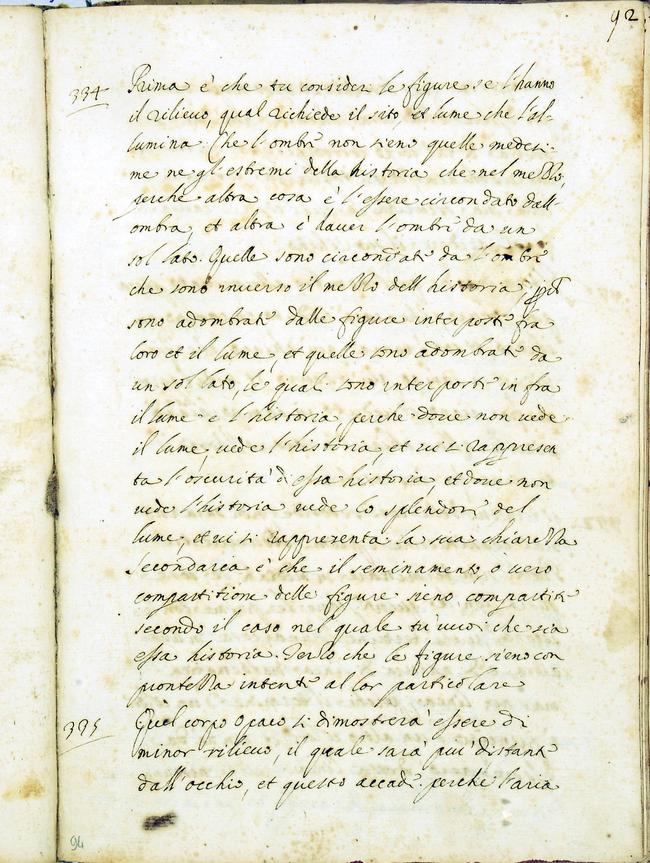 92
334 Prima è che tu consideri le figure se l'hanno
il rilieuo, qual richiede il sito, et lume che l'al-
lumina. Che l'ombre non sieno quelle medesi-
me ne gl'estremi della historia che nel mezzo,
perche altra cosa è l'essere circondato dall'
ombra, et altra è hauer l'ombre da un
sol lato. Quelle sono circondate da l'ombre
che sono inuerso il mezzo dell'historia
sono adombrate dalle figure interposte fra
loro et il lume, et quelle sono adombrate da
un sol lato, le quali sono interposte infra
il lume e l'historia, perche doue non uede
il lume, uede l'historia, et ui si rappresen
ta l'oscurità di essa historia, et doue non
uede l'historia uede lo splendore del
lume, et ui si rappresenta la sua chiarezza
Secondaria è che il seminamento, o uero
compartitione delle figure sieno compartite
secondo il caso nel quale tu uuoi che sia
essa historia. Terzo che le figure sieno con
prontezza intente al lor particolare
335 Quel corpo opaco si dimostrerà essere di
minor rilieuo, il quale sarà più distante
dall'occhio, et questo accade perche l'aria
94